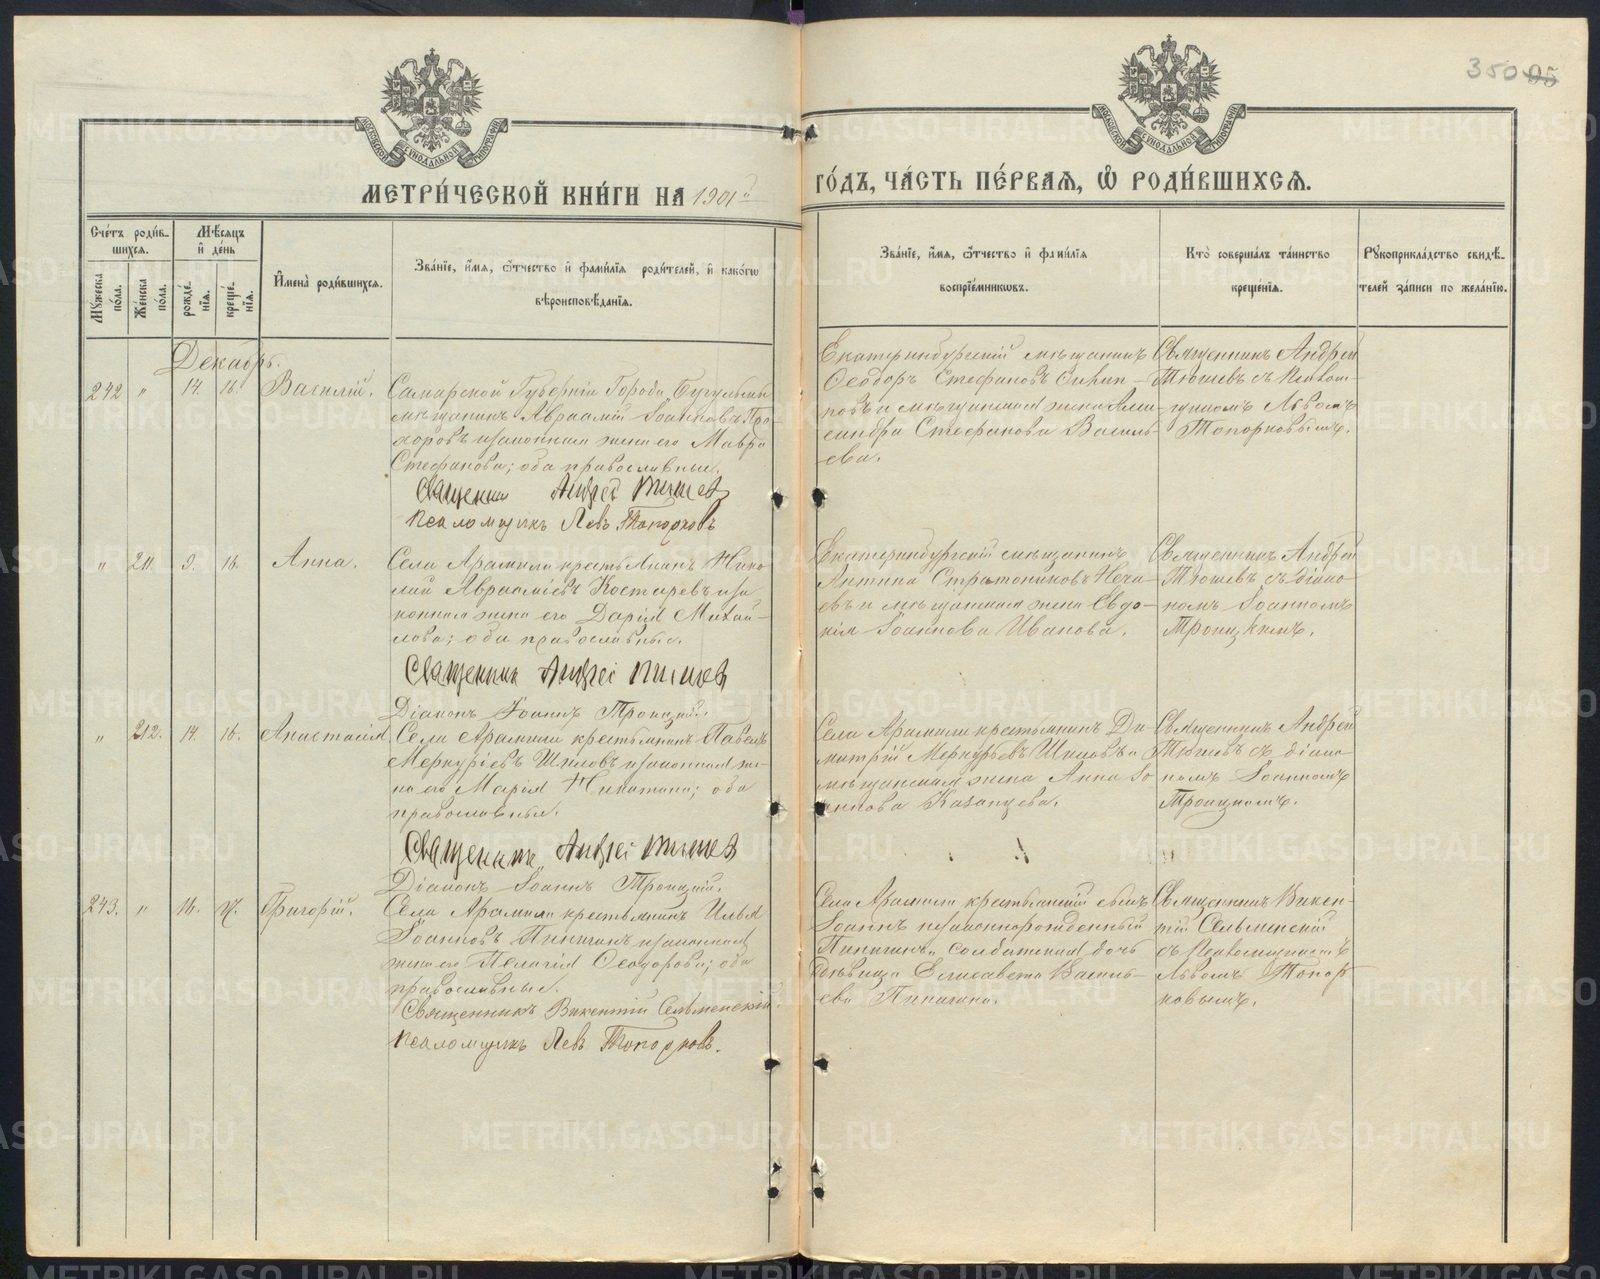 350 95
МОСКОВСКОЙ СѴНОДАЛЬНОЙ ТИПОГРАФІИ
МОСКОВСКОЙ СѴНОДАЛЬНОЙ ТИПОГРАФІИ
МЕТРИ́ЧЕСКОЙ КНИ́ГИ НА 1901й
ГО́ДЪ, ЧА́СТЬ ПЕ́РВАЯ, Ѡ҆ РОДИ́ВШИХСѦ.
Сче́тъ роди́в-
шихся.
Мꙋ́жеска по́ла.
Же́нска по́ла.
Мѣ́сяцъ и҆ де́нь
рожде́-нїя.
креще́-нїя.
И҆мена̀ роди́вшихся.
Зва́нїе, и҆́мя, ѻ҆́тчество и҆ фамі́лїя роди́телей, и҆ како́гѡ
вѣроисповѣ́данїя.
Зва́нїе, и҆́мя, ѻ҆́тчество и҆ фамі́лїя
воспрїе́мниковъ.
Кто̀ соверша́лъ та́инство
креще́нїя.
Рꙋкоприкла́дство свидѣ́-
телей за́писи по жела́нїю.
Декабрь.
242 " 14. 16. Василій.
Самарской Губерніи Города Бугульмы
мѣщанинъ Авраамій Іоанновъ Про-
хоровъ и законная жена его Мавра
Стефанова; оба православные.
Священникъ Андрей Тюшевъ
Псаломщикъ Левъ Топорковъ
Екатеринбургскій мѣщанинъ
Ѳеодоръ Стефановъ
и мѣщанская жена Алек-
сандра Стефанова Василь-
ева.
Священникъ Андрей
Тюшевъ съ Псалом-
щикомъ Львомъ
Топорковымъ.
" 211. 9. 16. Анна.
Села Арамили крестьянинъ Нико-
лай Авраамiевъ Костаревъ и за
конная жена его Дарія Михай-
лова; оба православные.
Священникъ Андрей Тюшевъ
Діаконъ Іоаннъ Троицкій.
Екатеринбургскій мѣщанинъ
Антипа Стратониковъ Неча-
евъ и мѣщанская жена Евдо-
кія Іоаннова Иванова.
Священникъ Андрей
Тюшевъ съ діако-
номъ Іоанномъ
Троицкимъ.
" 212. 14. 16. Анастасія
Села Арамили крестьянинъ Павелъ
Меркуріевъ Шиловъ и законная же-
на его Марія Никитина; оба
православные.
Священникъ Андрей Тюшевъ
Діаконъ Іоаннъ Троицкій.
Села Арамили крестьянинъ Ди
митрій Меркурьевъ Шиловъ и
мѣщанская жена Анна Іо
аннова Казанцева.
Священникъ Андрей
Тюшевъ съ діако
номъ Іоанномъ
Троицкимъ.
243. " 16. 17. Григорій.
Села Арамили крестьянинъ Илья
Іоанновъ Пинигинъ и законная
жена его Пелагія Ѳеодорова; оба
православные.
Священникъ Викентій Сельменскій.
Псаломщикъ Левъ Топорковъ.
Села Арамили крестьянскій сынъ
Іоаннъ незаконнорожденный
Пинигинъ и солдатская дочь
дѣвица Елисавета Василь-
ева Пинигина.
Священникъ Викен-
тій Сельменскій
съ Псаломщикомъ
Львомъ Топор
ковымъ.
METRIKI.GASO-URAL.RU